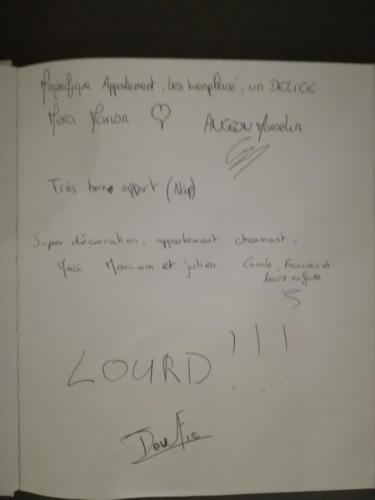 Magnifique Appartement, très bien placé, un DELICE
Merci Manon ANGRON Marcelin
Très bonne appart (Nip)
Super décoration, appartement charmant.
Merci Mariam et julien. Carole, François et
leurs enfants
LOURD !!!